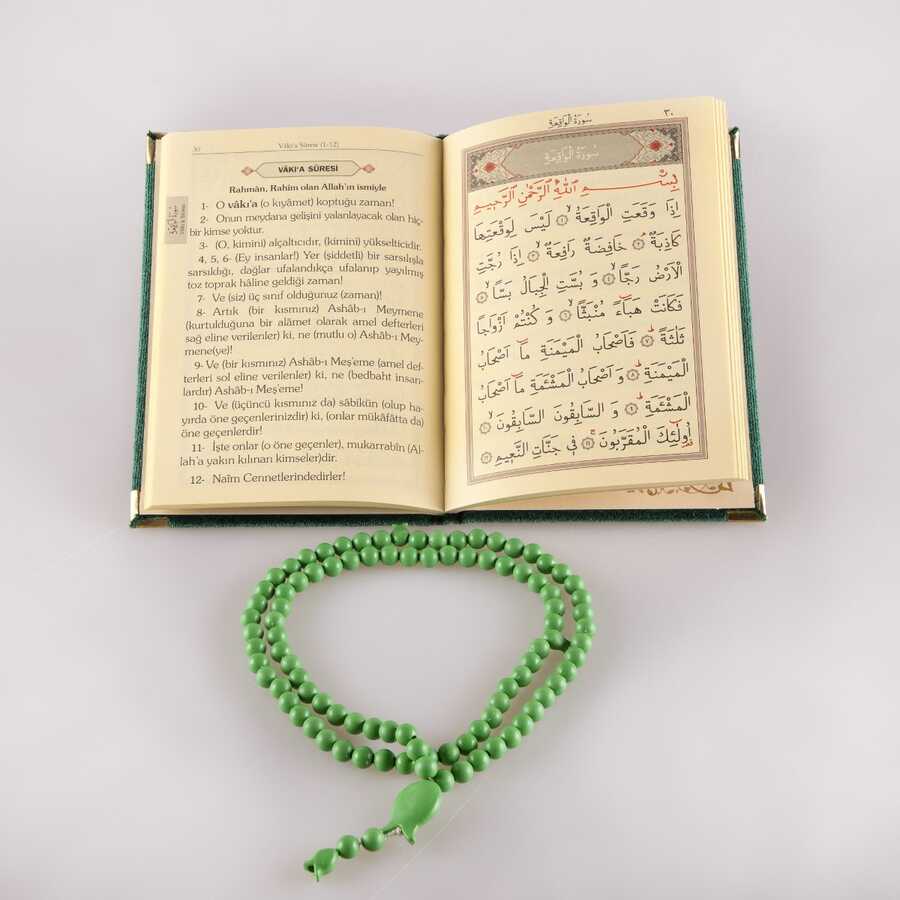 30
Vâkı'a Sûresi (1-12)
VÂKI'A SÛRESİ
Rahmân, Rahîm olan Allah'ın ismiyle
1- O vâkı'a (o kıyâmet) koptuğu zaman!
2- Onun meydana gelişini yalanlayacak olan hiç-
bir kimse yoktur.
3- (O, kimini) alçaltıcıdır, (kimini) yükselticidir.
4, 5, 6- (Ey insanlar!) Yer (şiddetli) bir sarsılışla
sarsıldığı, dağlar ufalandıkça ufalanıp yayılmış
toz toprak hâline geldiği zaman!
7- Ve (siz) üç sınıf olduğunuz (zaman)!
8- Artık (bir kısmınız) Ashâb-ı Meymene
(kurtulduğuna bir alâmet olarak amel defterleri
sağ eline verilenler) ki, ne (mutlu o) Ashâb-ı Mey-
mene(ye)!
9- Ve (bir kısmınız) Ashâb-ı Meş'eme (amel def-
terleri sol eline verilenler) ki, ne (bedbaht insan-
lardır) Ashâb-ı Meş'eme!
10- Ve (üçüncü kısmınız da) sâbikûn (olup ha-
yırda öne geçenlerinizdir) ki, (onlar mükâfâtta da)
öne geçenlerdir!
11- İşte onlar (o öne geçenler), mukarrabîn (Al-
lah'a yakın kılınan kimseler)dir.
12- Naîm Cennetlerindedirler!
٣٠
سُورَةُ الْوَاقِعَةِ
سُورَةُ الْوَاقِعَةِ
بِسْمِ اللّٰهِ الرَّحْمٰنِ الرَّحِيمِ
اِذَا وَقَعَتِ الْوَاقِعَةُ ﴿١﴾ لَيْسَ لِوَقْعَتِهَا
كَاذِبَةٌ ﴿٢﴾ خَافِضَةٌ رَافِعَةٌ ﴿٣﴾ اِذَا رُجَّتِ
الْاَرْضُ رَجًّا ﴿٤﴾ وَ بُسَّتِ الْجِبَالُ بَسًّا ﴿٥﴾
فَكَانَتْ هَبَاءً مُنْبَثًّا ﴿٦﴾ وَ كُنْتُمْ اَزْوَاجًا
ثَلٰثَةً ﴿٧﴾ فَاَصْحَابُ الْمَيْمَنَةِ مَا اَصْحَابُ
الْمَيْمَنَةِ ﴿٨﴾ وَ اَصْحَابُ الْمَشْئَمَةِ مَا اَصْحَابُ
الْمَشْئَمَةِ ﴿٩﴾ وَ السَّابِقُونَ السَّابِقُونَ ﴿١٠﴾
اُولٰئِكَ الْمُقَرَّبُونَ ﴿١١﴾ فِى جَنَّاتِ النَّعِيمِ ﴿١٢﴾